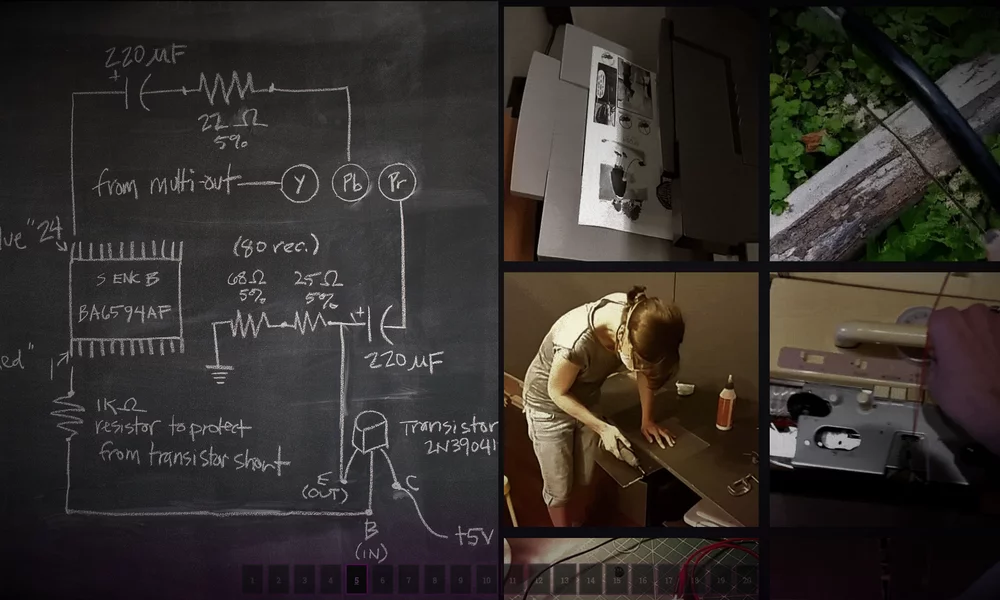 220 µF
+
22 Ω
5%
from multi-out
Y
Pb
Pr
"24
(80 rec.)
S ENC B
BA6594AF
68Ω
5%
25Ω
5%
+
220 µF
1
1KΩ
resistor to protect
from transistor short
Transistor
2N3904
E
(OUT)
C
B
(IN)
+5V
1 2 3 4 5 6 7 8 9 10 11 12 13 14 15 16 17 18 19 20